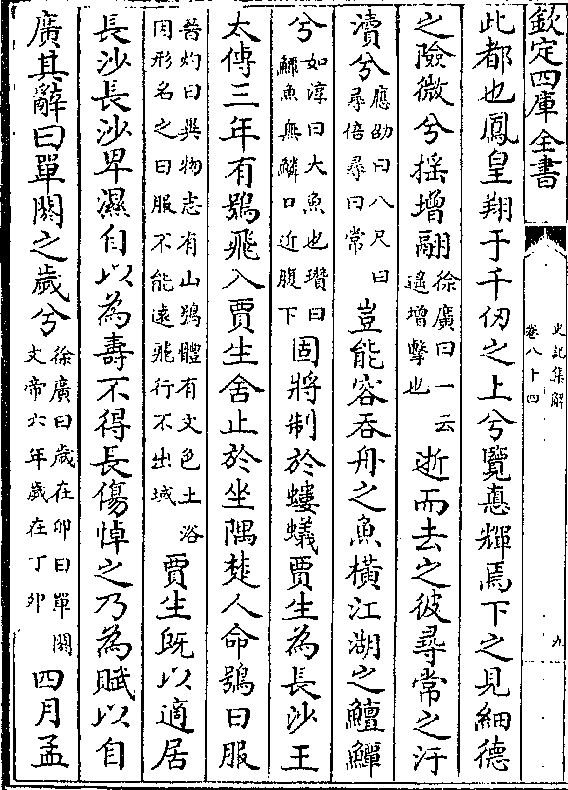 欽定四庫全書
史記集解
卷八十四
九
此都也鳳皇翔于千仞之上兮覽悳輝焉下之見細德
之險微兮搖增翮徐廣曰一云遙增擊也逝而去之彼尋常之汙
瀆兮應劭曰八尺曰尋倍尋曰常豈能容吞舟之魚橫江湖之鱣鱓
兮如淳曰大魚也瓚曰鱏魚無鱗口近腹下固將制於螻蟻賈生為長沙王
太傅三年有鴞飛入賈生舍止於坐隅楚人命鴞曰服
晉灼曰異物志有山鴞體有文色土俗因形名之曰服不能遠飛行不出域賈生既以適居
長沙長沙卑濕自以為壽不得長傷悼之乃為賦以自
廣其辭曰單閼之歲兮徐廣曰歲在卯曰單閼文帝六年歲在丁卯四月孟